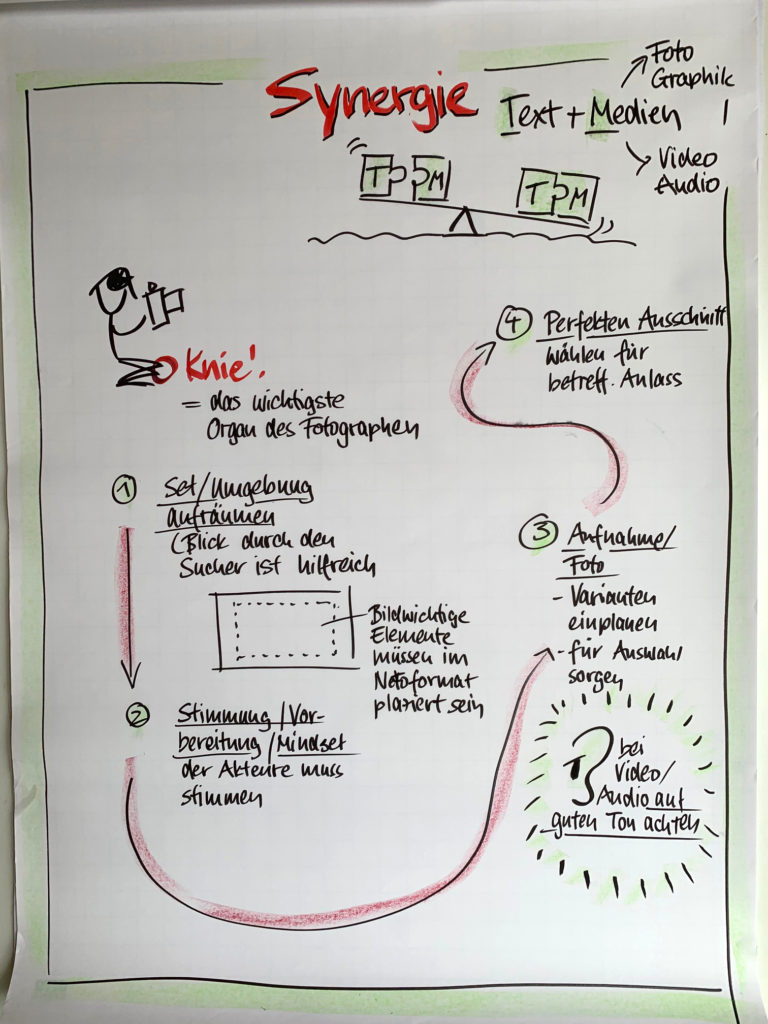 Synergie
Text + Medien
Foto
Graphik
Video
Audio
T M
T M
Knie!
= das wichtigste
Organ des Fotographen
1 Set/Umgebung
aufräumen
(Blick durch den
Sucher ist hilfreich
Bildwichtige
Elemente
müssen im
Notoformat
plaziert sein
2 Stimmung/Vor-
bereitung/Mindset
der Akteure muss
stimmen
3 Aufnahme/
Foto
- Varianten
einplanen
- für Auswahl
sorgen
bei
Video/
Audio auf
guten Ton achten
4 Perfekten Ausschnitt
wählen für
betreff. Anlass